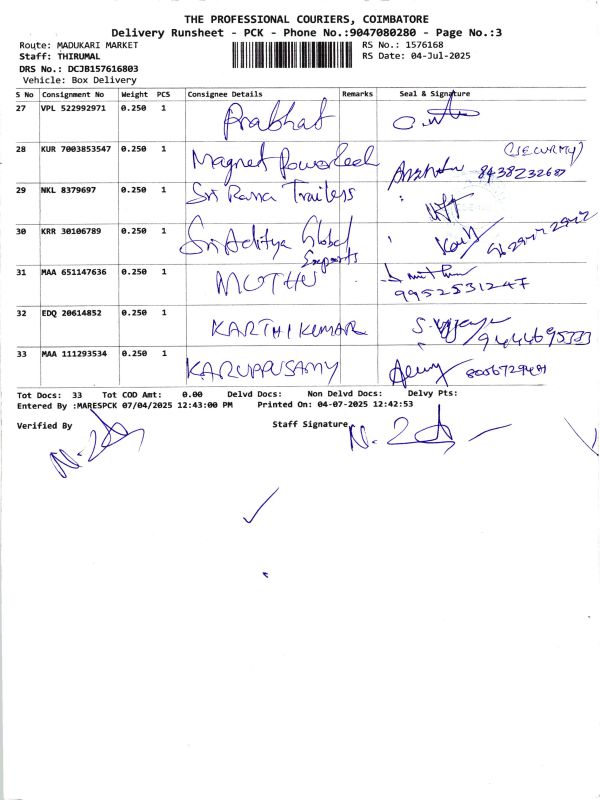 THE PROFESSIONAL COURIERS, COIMBATORE
Delivery Runsheet - PCK - Phone No.:9047080280 - Page No.:3
Route: MADUKARI MARKET RS No.: 1576168
Staff: THIRUMAL RS Date: 04-Jul-2025
DRS No.: DCJB157616803
Vehicle: Box Delivery
S No Consignment No Weight PCS Consignee Details Remarks Seal & Signature
27 VPL 522992971 0.250 1 Prabhat
28 KUR 7003853547 0.250 1 Magnet Powertech (SECURITY) 8438232687
29 NKL 8379697 0.250 1 Sri Rana Trailers
30 KRR 30106789 0.250 1 Sri Aditya Global Exports
31 MAA 651147636 0.250 1 MUTHU 9952531247
32 EDQ 20614852 0.250 1 KARTHIKUMAR 9444695333
33 MAA 111293534 0.250 1 KARUPPUSAMY
Tot Docs: 33 Tot COD Amt: 0.00 Delvd Docs: Non Delvd Docs: Delvy Pts:
Entered By :MARESPCK 07/04/2025 12:43:00 PM Printed On: 04-07-2025 12:42:53
Verified By Staff Signature